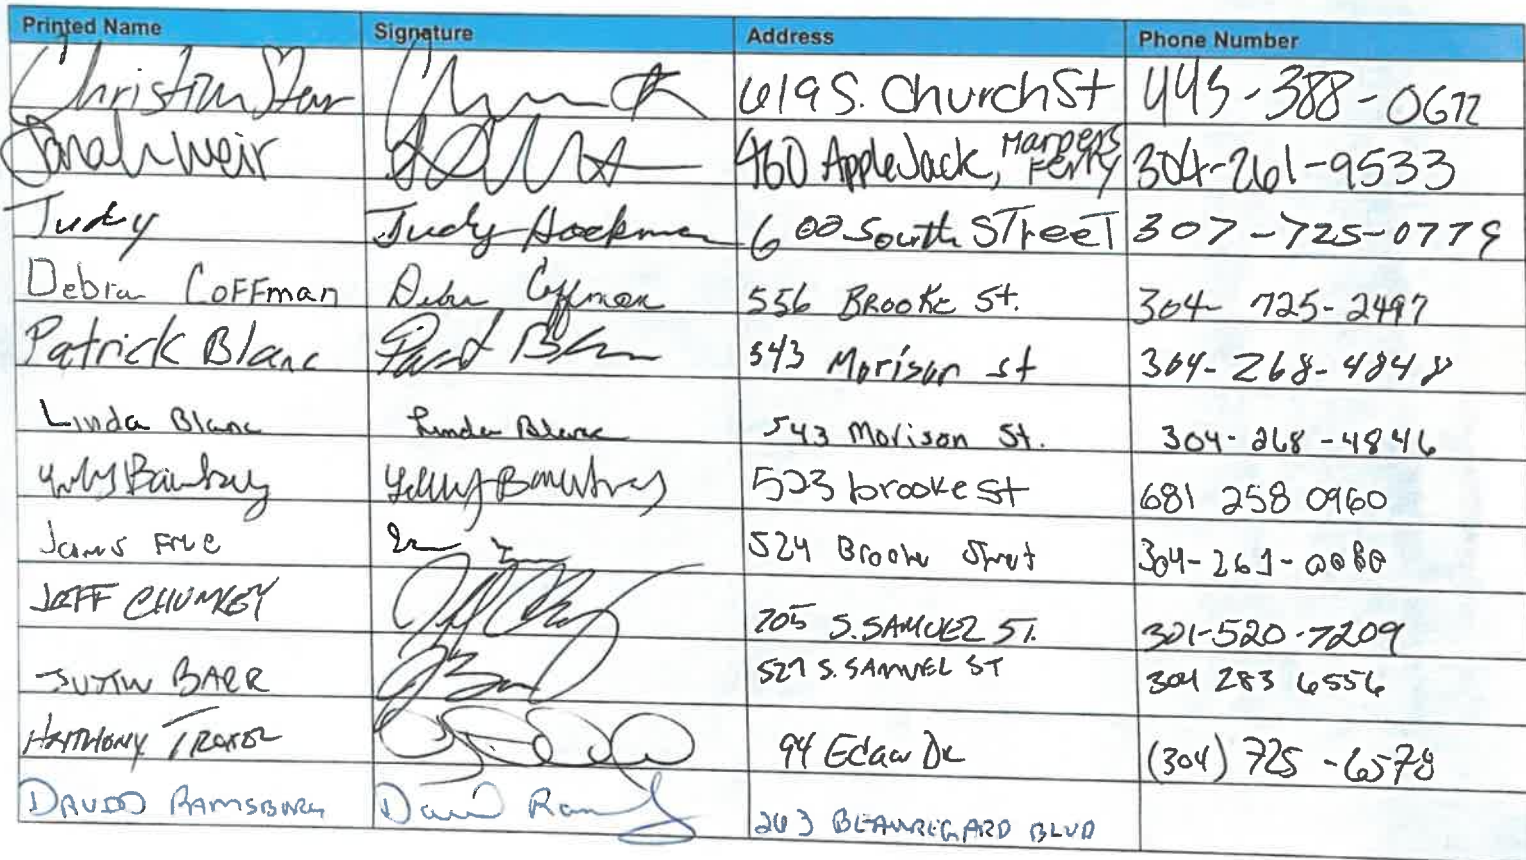 Printed Name Signature Address Phone Number
Christian Starr 619 S. Church St 443-388-0672
Sarah Weir 460 AppleJack, Harpers Ferry 304-261-9533
Judy Judy Hockman 600 South STreeT 307-725-0779
Debra CoFFman Debra Coffman 556 BRooKe St. 304-725-2497
Patrick Blanc 543 Morison st 304-268-4848
Linda Blanc Linda Blanc 543 Morison St. 304-268-4846
523 brooke st 681 258 0960
James 524 Brooke Street 304-261-0080
JEFF CHUMLEY 205 S. SAMUEL ST. 301-520-7209
JUSTIN BARR 527 S. SAMUEL ST 304 283 6556
ANTHONY TROXEL 94 Edaw Dr (304) 725-6578
DAVID RAMSBURG David 263 BEAUREGARD BLVD